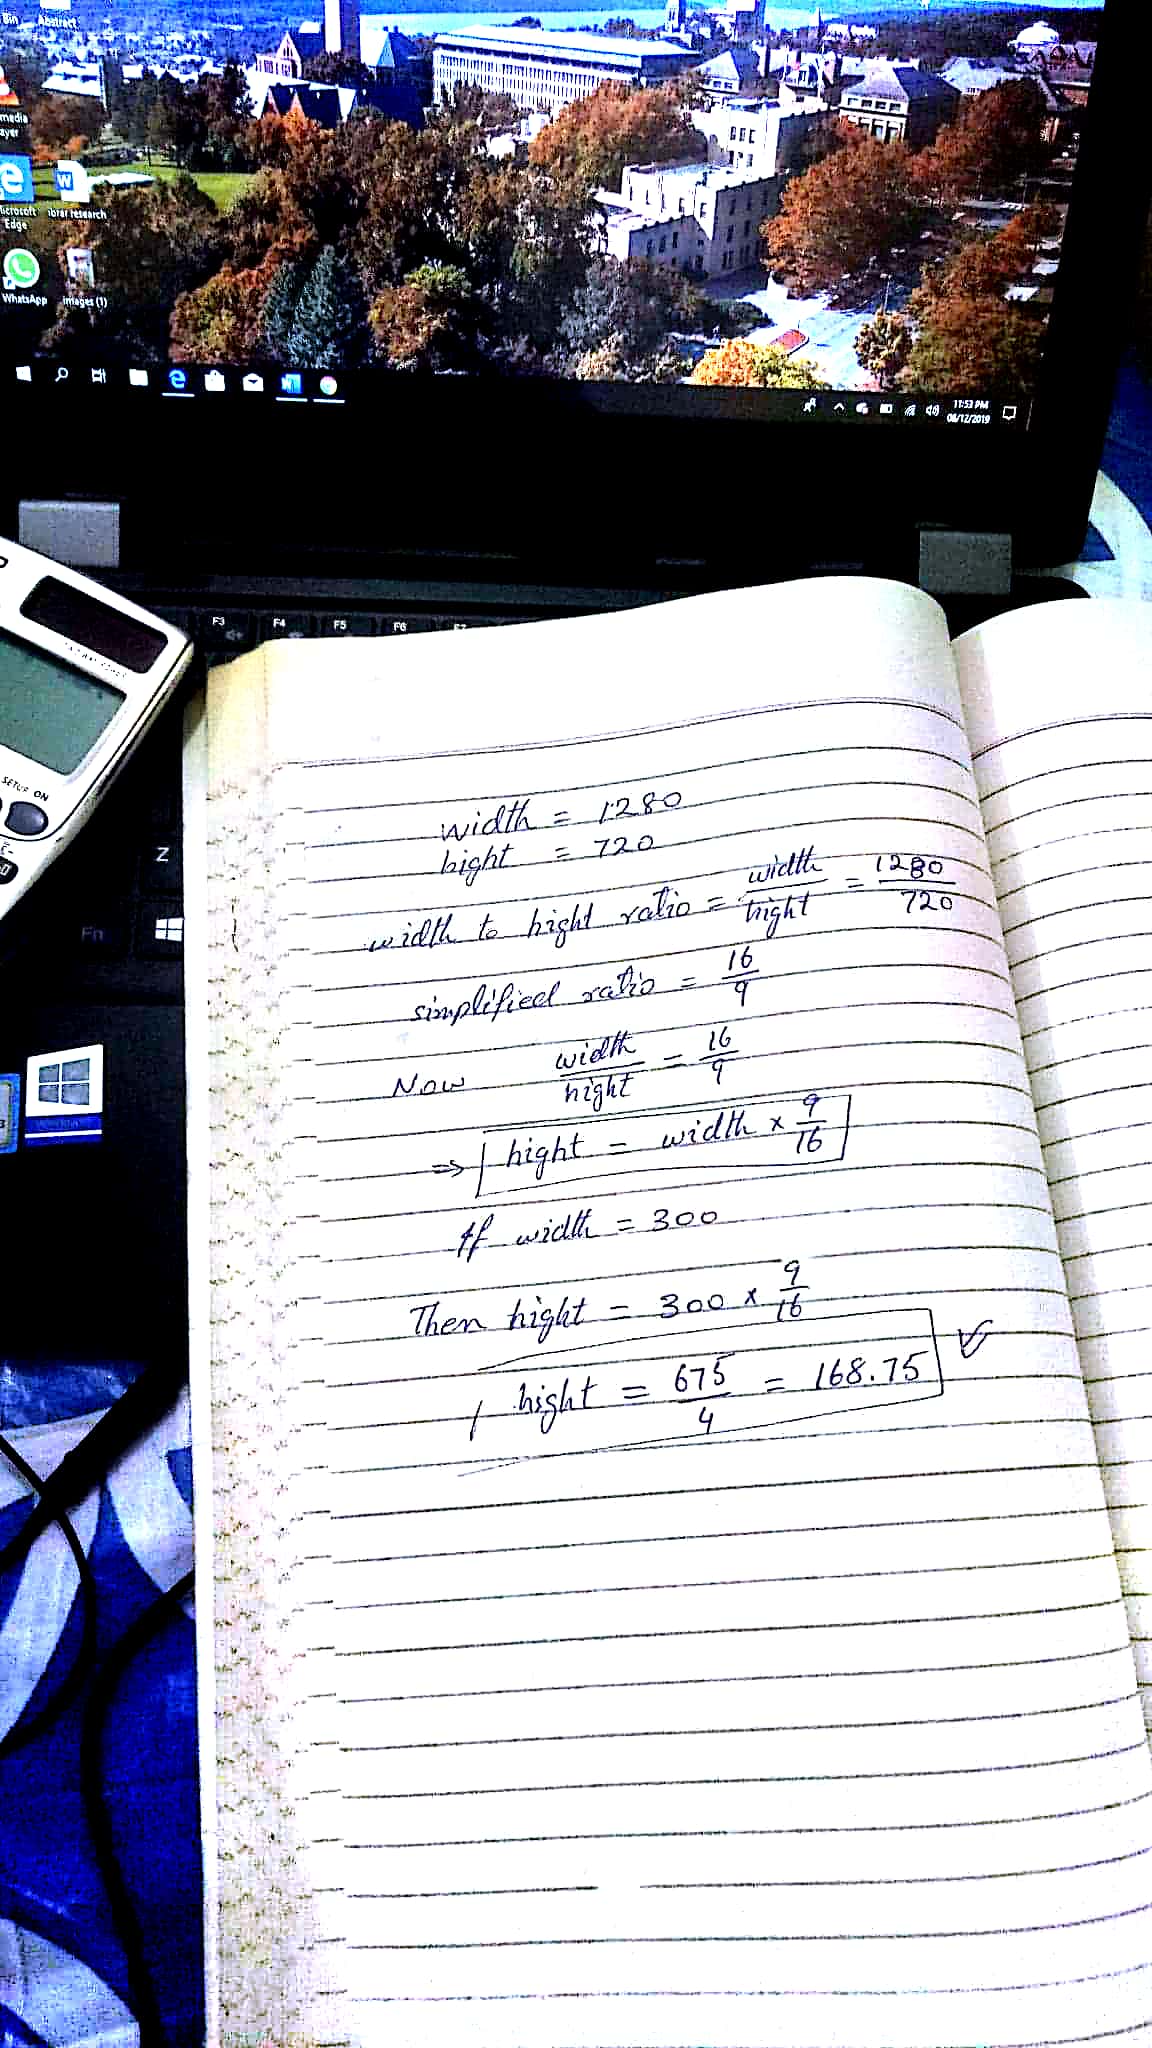 Bin
Abstract
media
ayer
Microsoft
Edge
ibrar research
WhatsApp
images (1)
11:53 PM
06/12/2019
F3
F4
F5
F6
F7
SETUP ON
Z
Fn
width = 1280
hight = 720
width to hight ratio = width/hight = 1280/720
simplified ratio = 16/9
Now width/hight = 16/9
⇒ hight = width × 9/16
If width = 300
Then hight = 300 × 9/16
hight = 675/4 = 168.75